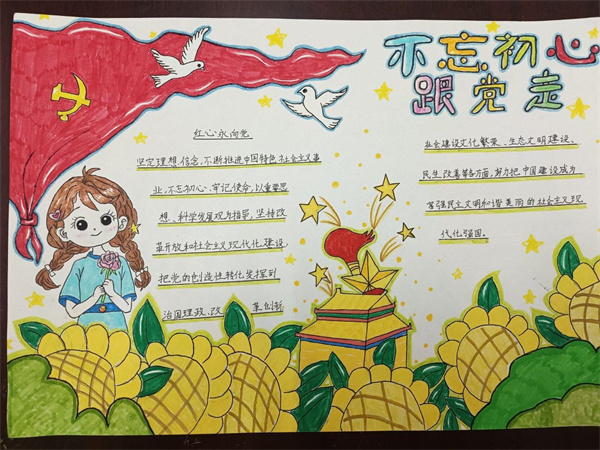 不忘初心
跟党走
红心永向党
坚定理想、信念,不断推进中国特色社会主义事
业,不忘初心、牢记使命,以重要思
想、科学发展观为指导,坚持改
革开放和社会主义现代化建设
把党的创造性转化发挥到
治国理政、改 革创新
社会建设文化繁荣、生态文明建设、
民生改善等各方面,努力把中国建设成为
富强民主文明和谐美丽的社会主义现
代化强国。